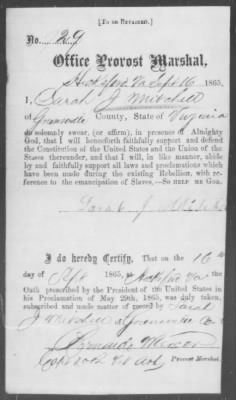 [TO BE RETAINED.]
No. 29
Office Provost Marshal,
Va Sept 16 1865.
I, Sarah J Mitchell
of Greensville County, State of Virginia
do solemnly swear, (or affirm), in presence of Almighty
God, that I will henceforth faithfully support and defend
the Constitution of the United States and the Union of the
States thereunder, and that I will, in like manner, abide
by and faithfully support all laws and proclamations which
have been made during the existing Rebellion, with ref-
erence to the emancipation of Slaves,—SO HELP ME GOD.
Sarah J. Mitchell
I do hereby Certify, That on the 16
day of Sept 1865, at Va
Oath prescribed by the President of the United States in
his Proclamation of May 29th, 1865, was duly taken,
subscribed and made matter of record by Sarah
J Mitchell of Greensville Co
Provost Marshal.